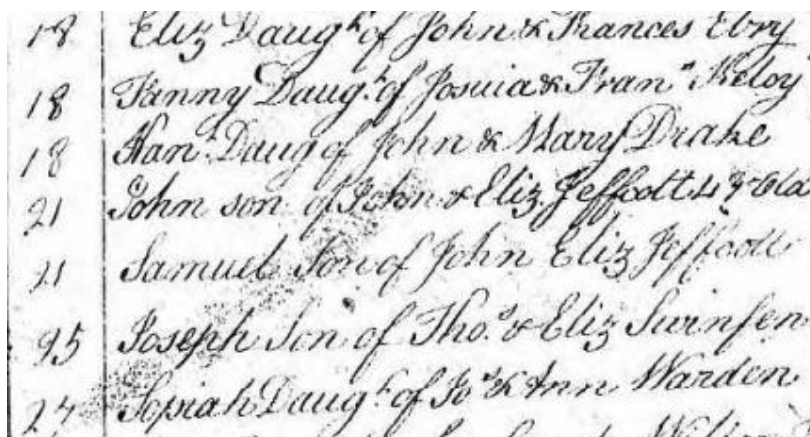 18 Eliz Daugh of John & Frances Ebry
18 Fanny Daugh. of Josuia & Fran.s Keloy
18 Han. Daug of John & Mary Drake
21 John son of John & Eliz Jeffcott 4 yr Old
21 Samuel Son of John Eliz Jeffcott
25 Joseph Son of Tho.s & Eliz Swinfen
27 Sopiah Daugh. of Jo.s & Ann Warden